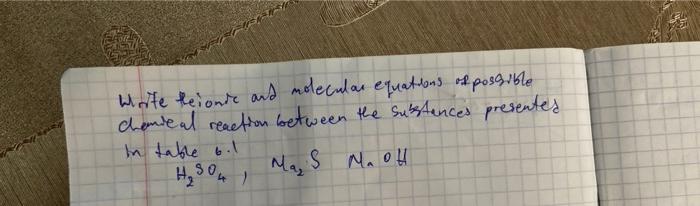 Write the ionic and molecular equations of possible
chemical reaction between the substances presented
in table 6.1
H₂SO₄, Na₂S NaOH